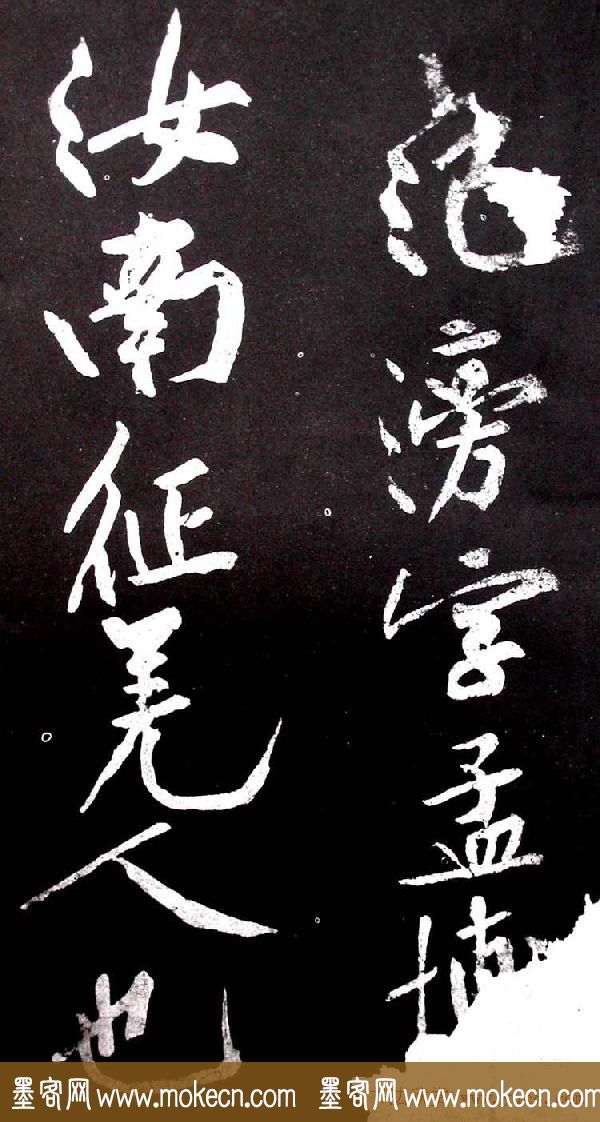 范滂字孟博
汝南征羌人也
墨客网 www.mokecn.com 墨客网 www.mokecn.com